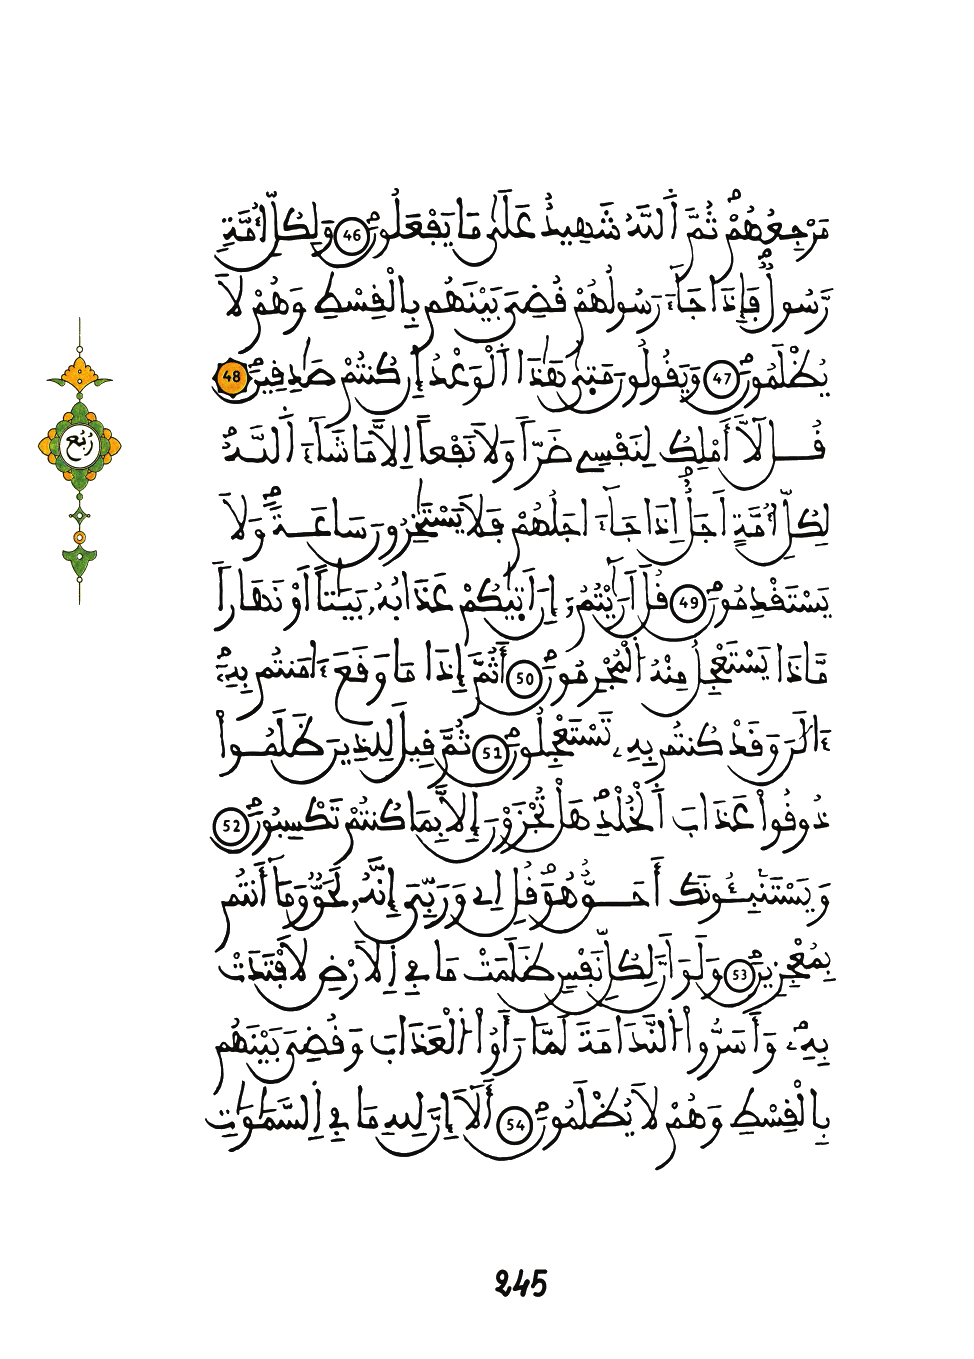 مَرْجِعُهُمْ ثُمَّ اَ۬للَّهُ شَهِيدٌ عَلَىٰ مَا يَفْعَلُونَۖ 46 وَلِكُلِّ أُمَّةٖ
رَّسُولٞۖ فَإِذَا جَآءَ رَسُولُهُمْ قُضِيَ بَيْنَهُم بِالْقِسْطِ وَهُمْ لَا
يُظْلَمُونَۖ 47 وَيَقُولُونَ مَتَىٰ هَٰذَا اَ۬لْوَعْدُ إِن كُنتُمْ صَٰدِقِينَۖ 48
ربع
قُل لَّآ أَمْلِكُ لِنَفْسِے ضَرّاٗ وَلَا نَفْعاً اِلَّا مَا شَآءَ اَ۬للَّهُۖ
لِكُلِّ أُمَّةٍ اَجَلٌۖ اِذَا جَآءَ اجَلُهُمْ فَلَا يَسْتَٰخِرُونَ سَاعَةٗۖ وَلَا
يَسْتَقْدِمُونَۖ 49 قُلَ اَرَٰٓيْتُمُۥٓ إِنَ اَتٜيٰكُمْ عَذَابُهُۥ بَيَٰتاً اَوْ نَهَاراٗ
مَّاذَا يَسْتَعْجِلُ مِنْهُ اُ۬لْمُجْرِمُونَۖ 50 أَثُمَّ إِذَا مَا وَقَعَ ءَامَنتُم بِهِۦٓۖ
ءَآلَٰنَ وَقَدْ كُنتُم بِهِۦ تَسْتَعْجِلُونَۖ 51 ثُمَّ قِيلَ لِلذِينَ ظَلَمُواْ
ذُوقُواْ عَذَابَ اَ۬لْخُلْدِۖ هَلْ تُجْزَوْنَ إِلَّا بِمَا كُنتُمْ تَكْسِبُونَۖ 52
وَيَسْتَنۢبِـُٔونَكَ أَحَقٌّ هُوَۖ قُلِ اِے وَرَبِّيَ إِنَّهُۥ لَحَقّٞۖ وَمَآ أَنتُم
بِمُعْجِزِينَۖ 53 وَلَوَ اَنَّ لِكُلِّ نَفْسٖ ظَلَمَتْ مَا فِي اِ۬لَارْضِ لَافْتَدَتْ
بِهِۦۖ وَأَسَرُّواْ اُ۬لنَّدَامَةَ لَمَّا رَأَوُاْ اُ۬لْعَذَابَ وَقُضِيَ بَيْنَهُم
بِالْقِسْطِ وَهُمْ لَا يُظْلَمُونَۖ 54 أَلَآ إِنَّ لِلهِ مَا فِي اِ۬لسَّمَٰوَٰتِ
245